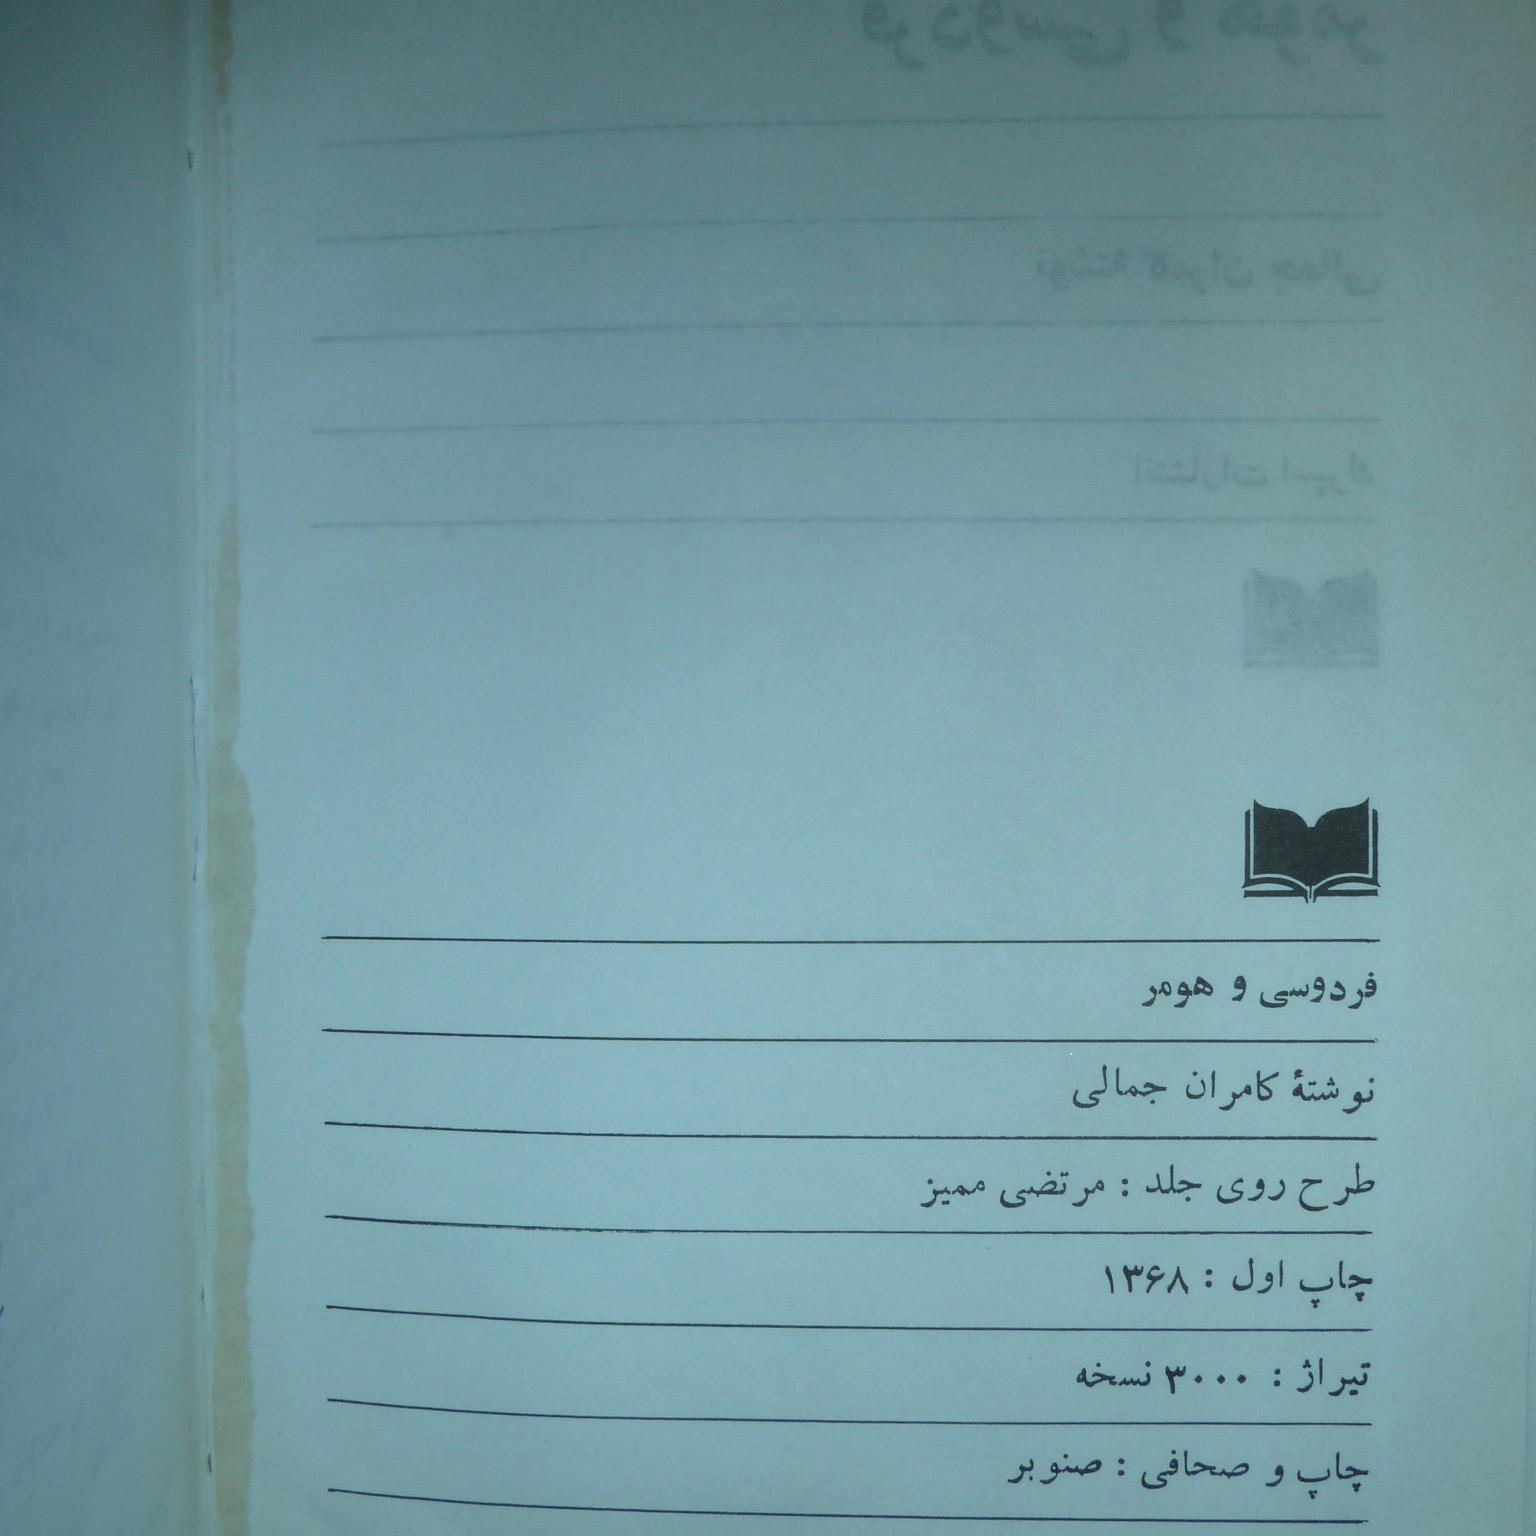 فردوسی و هومر
نوشتهٔ کامران جمالی
طرح روی جلد : مرتضی ممیز
چاپ اول : ۱۳۶۸
تیراژ : ۳۰۰۰ نسخه
چاپ و صحافی : صنوبر